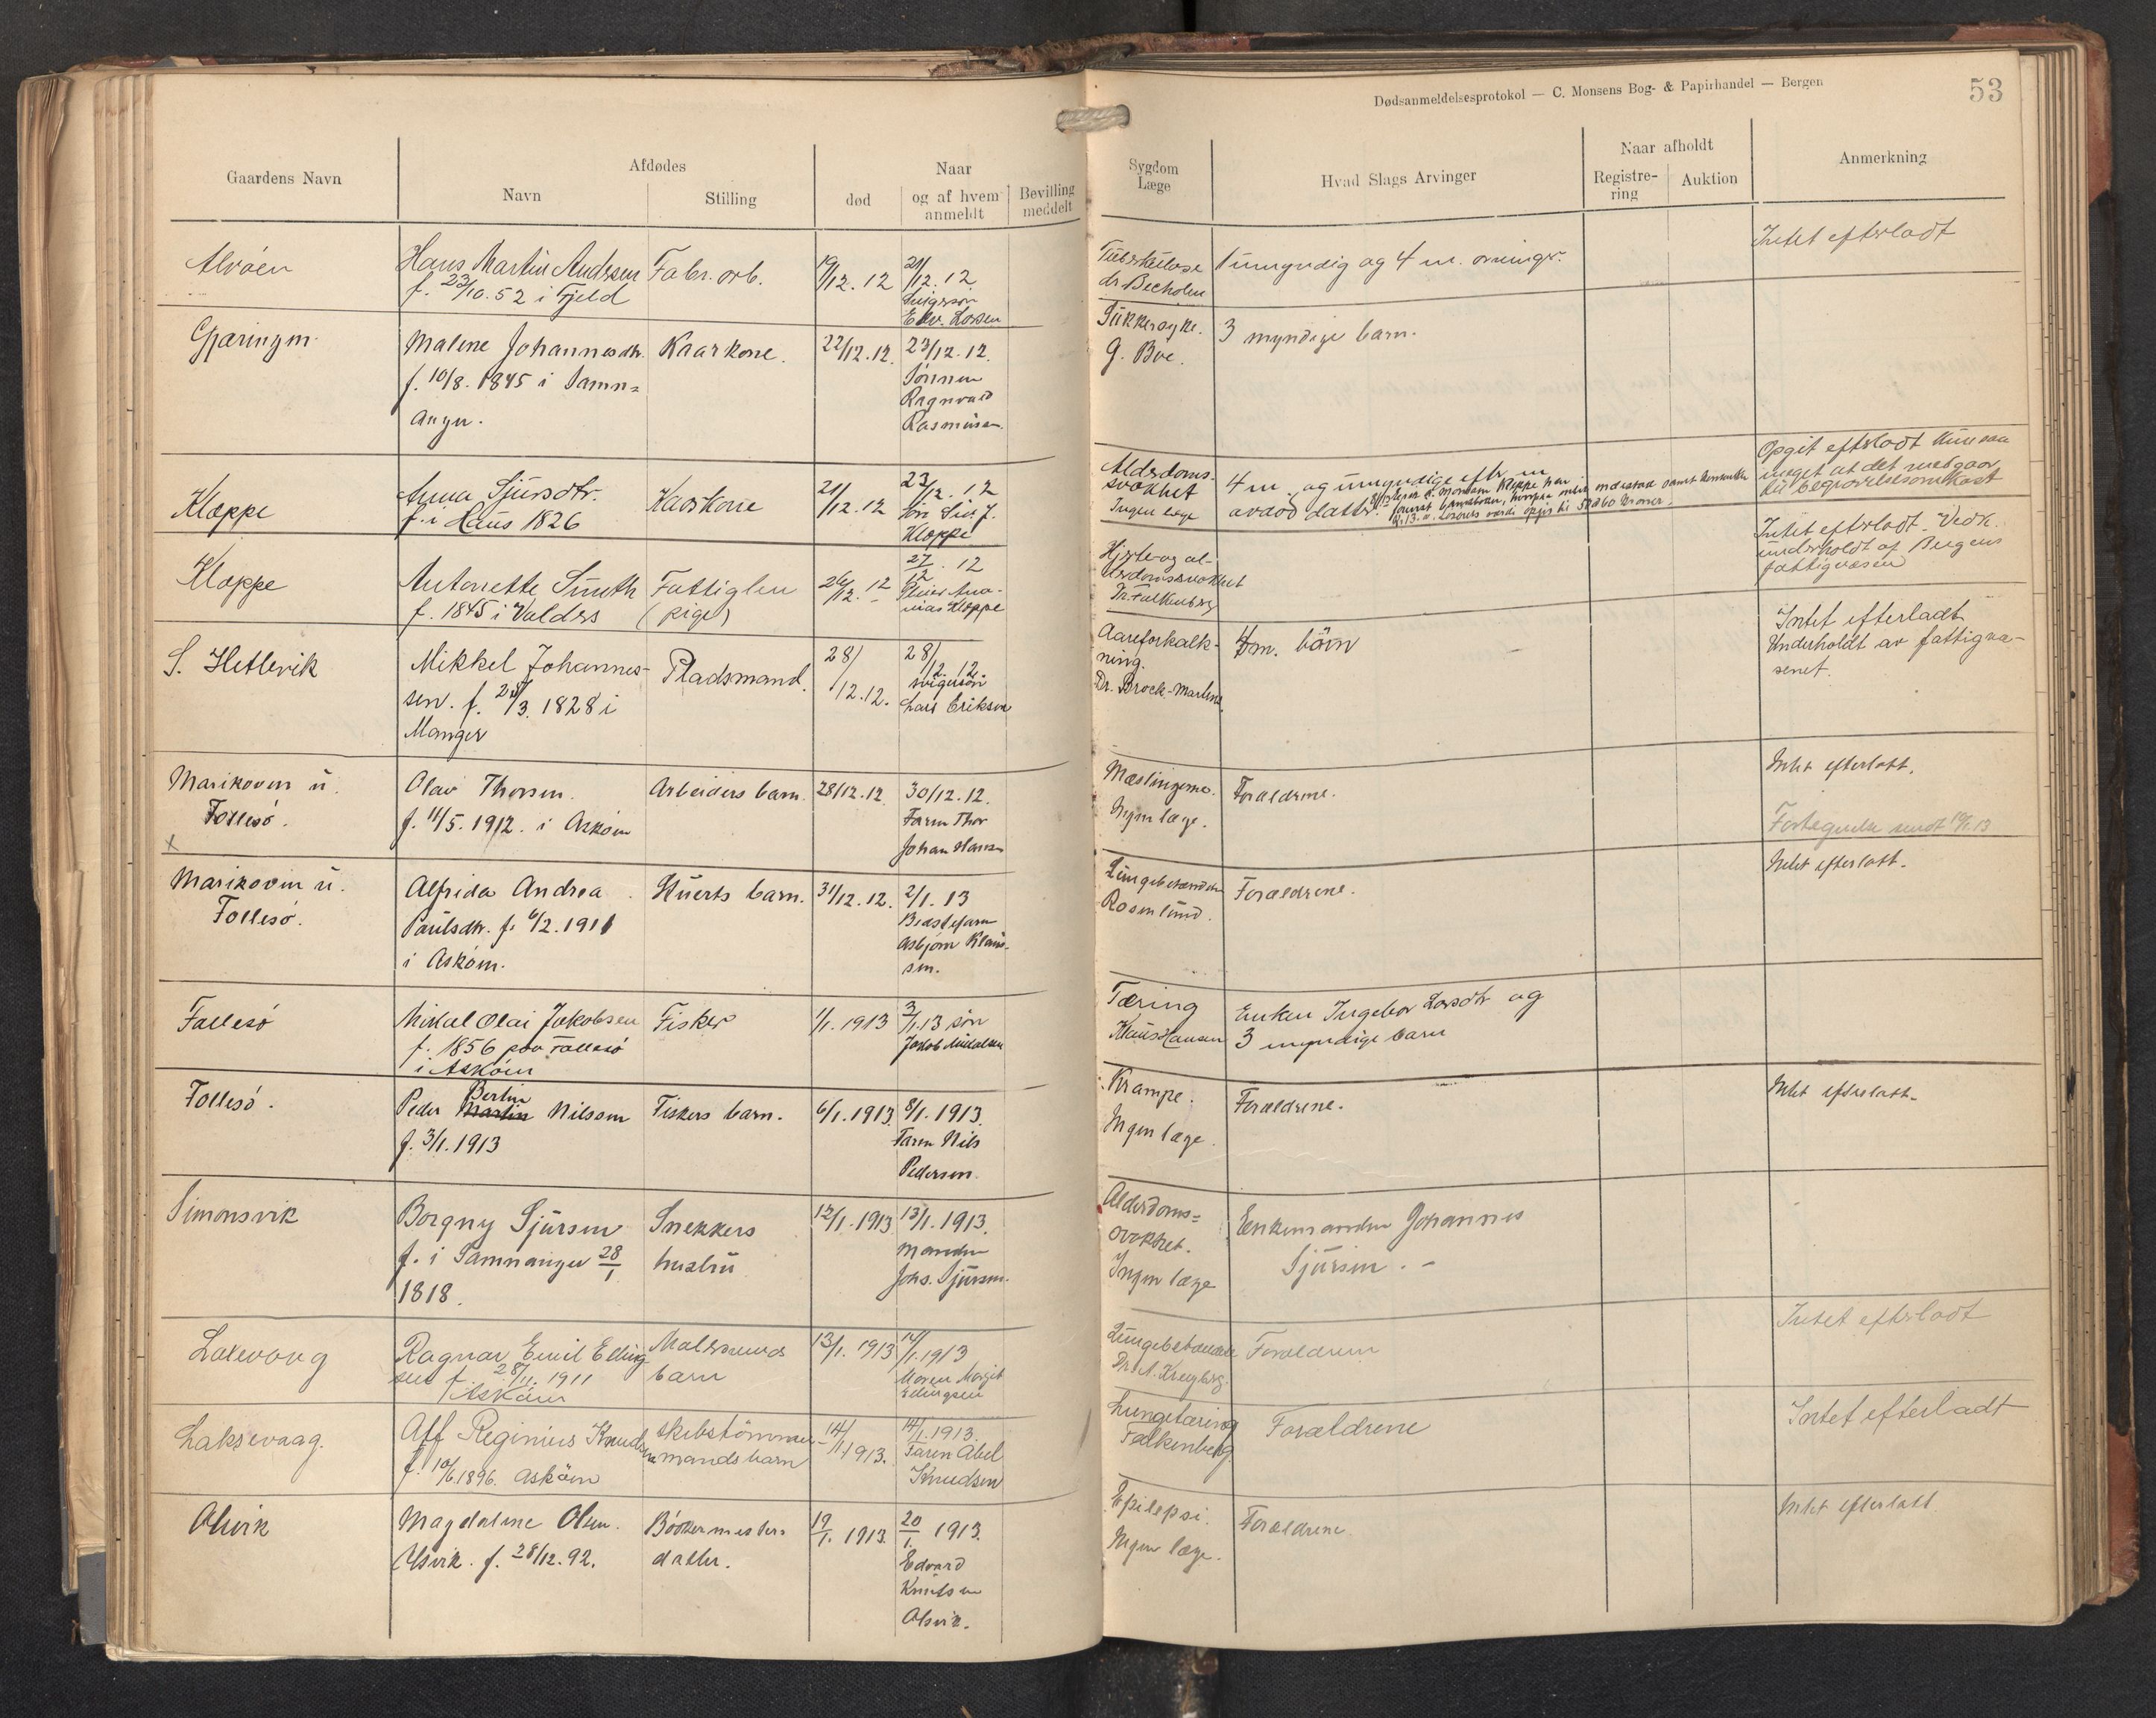 Dødsanmeldelsesprotokol — C. Monsens Bog- & Papirhandel — Bergen
53
Gaardens Navn
Afdødes
Navn
Stilling
Naar
død
og af hvem
anmeldt
Bevilling
meddelt
Sygdom
Læge
Hvad Slags Arvinger
Naar afholdt
Registre-
ring
Auktion
Anmerkning
Alvöen
Hans Martin Andersen
f. 23/10.52 i Fjeld
Fabr. arb.
19/12.12
21/12.12
Svigersön
Tüberkülose
1 umyndig og 4 m. arvinger.
Intet efterladt
Gjæringm.
Malene Johannesdtr.
f. 10/8. 1845 i Samn=
anger.
Kaarkone.
22/12.12.
23/12.12.
Sönnen
Ragnvald
Rasmüsen.
Sükkersyke.
G. Boe.
3 myndige barn.
Kleppe
Anna Sjürsdtr.
f. i Haüs 1826
Kaarkone
21/12.12
23/12.12
Kleppe
Alderdoms-
svakhet
Ingen læge
4 m. og umyndige efter en
avdöd datter.
Opgit efterladt kun saa
meget at det medgaar
til begravelsesomkost
Kleppe
Antonette Smith
f. 1845 i Valders
Fattiglem
(pige)
26/12.12
27/12.12
Kleppe
Hjerte og al-
derdomssvakhet
Dr. Falkenberg
Intet efterladt. Vedk.
underholdt af Bergens
fattigvæsen
S. Hetlevik
Mikkel Johannes-
sen. f. 25/3. 1828 i
Manger
Pladsmand.
28/12.12.
28/12.12.
svigersön
Lars Eriksen
Aareforkalk-
ning.
Dr. Brock-Martens
4 m. börn
Intet efterladt
Underholdt av fattigvæ-
senet.
Marikoven ü.
Follesö.
x
Olav Thorsen.
f. 11/5. 1912. i Asköen
Arbeiders barn.
28/12.12.
30/12.12.
Faren Thor
Johan Hansen
Mæslingerne.
Ingen læge.
Forældrene.
Intet efterlatt.
Fortegnelse sendt 10/1.13
Marikoven ü.
Follesö.
Alfrida Andrea
Paülsdtr. f. 6/2. 1911
i Asköen.
Stüerts barn.
31/12.12.
2/1.13
Bedstefaren
Asbjörn Klaüs-
sen.
Lüngebetændelse
Rosenlünd.
Forældrene.
Intet efterlatt.
Follesö
Mikal Olai Jakobsen
f. 1856 paa Follesö
i Asköen
Fisker
1/1.1913
3/1.13 sön
Jakob Mikalsen
Tæring
Klaüs Hansen
Enken Ingebor Larsdtr og
3 myndige barn
Follesö.
Peder Martin Bertin Nilssen
f. 3/1.1913
Fiskers barn.
6/1.1913.
8/1.1913.
Faren Nils
Pedersen.
Krampe.
Ingen læge.
Forældrene.
Intet efterlatt.
Simonsvik
Borgny Sjürsen
f. i Samnanger 28/1
1818.
Snekkers
hustrü
12/1.1913
13/1.1913.
Manden
Johs. Sjürsen.
Alderdoms=
svakhet.
Ingen læge
Enkemanden Johannes
Sjürsen. -
Laxevaag
Ragnar Emil Elling
sen f. 28/11. 1911
i Asköen
Malersvends
barn
13/1.1913
14/1.1913
Moren Margit
Ellingsen
Lüngebetændelse
Forældrene
Intet efterladt
Laksevaag.
Alf Reginius Knudsen
f. 10/6.1896. Asköen
skibstömmer-
mandsbarn
14/1.1913.
14/1.1913.
Faren Abel
Knudsen
Lungetæring
Falkenberg
Forældrene
Intet efterladt
Olsvik
Magdalene Olsen.
Olsvik. f. 28/12.92.
Bödkermesters
datter.
19/1.1913.
20/1.1913.
Edvard
Knütsen
Olsvik.
Epilepsi.
Ingen læge.
Forældrene.
Intet efterlatt